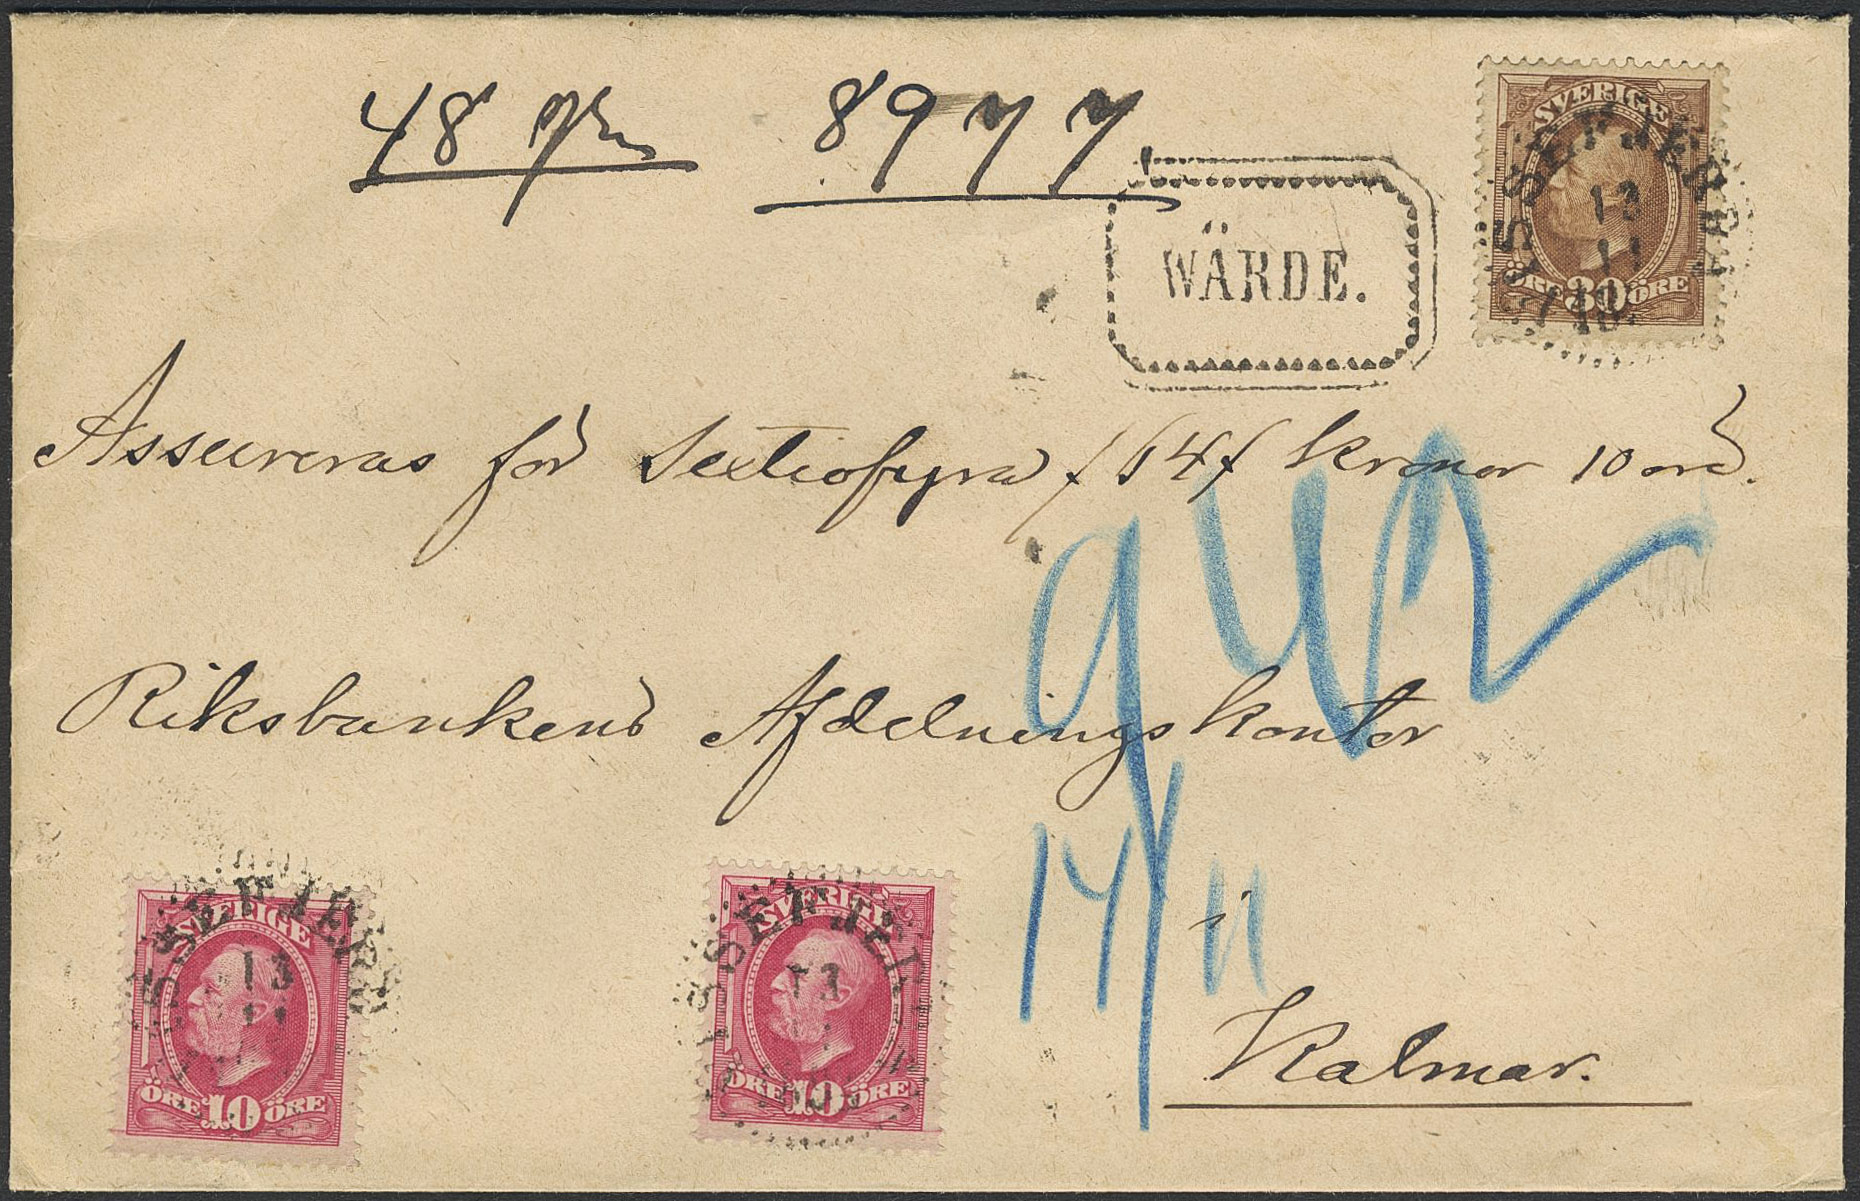 48 gr 8977
SVERIGE
13
11
ÖRE 30 ÖRE
WÄRDE.
Assureras för Sextiofyra /64/ kronor 10 öre.
942
Riksbankens Afdelningskontor
14/11
i
Kalmar.
SVERIGE
13
11
ÖRE 10 ÖRE
SVERIGE
13
ÖRE 10 ÖRE